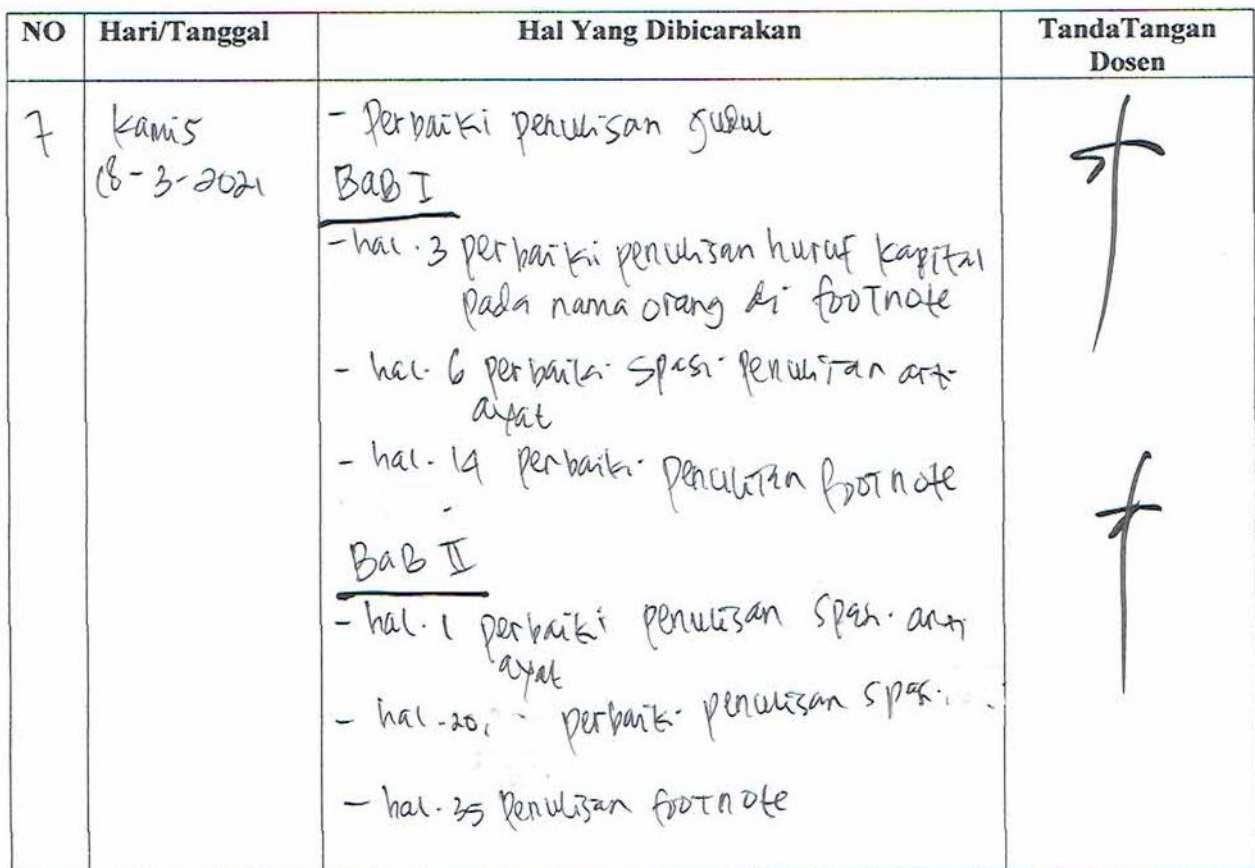 NO Hari/Tanggal Hal Yang Dibicarakan TandaTangan Dosen
7 Kamis
18-3-2021
- Perbaiki penulisan judul
BAB I
- hal. 3 perbaiki penulisan huruf kapital
pada nama orang di footnote
- hal. 6 perbaiki spasi penulisan arti
ayat
- hal. 14 perbaiki penulisan footnote
BAB II
- hal. 1 perbaiki penulisan spasi arti
ayat
- hal. 20, perbaiki penulisan spasi
- hal. 35 Penulisan footnote